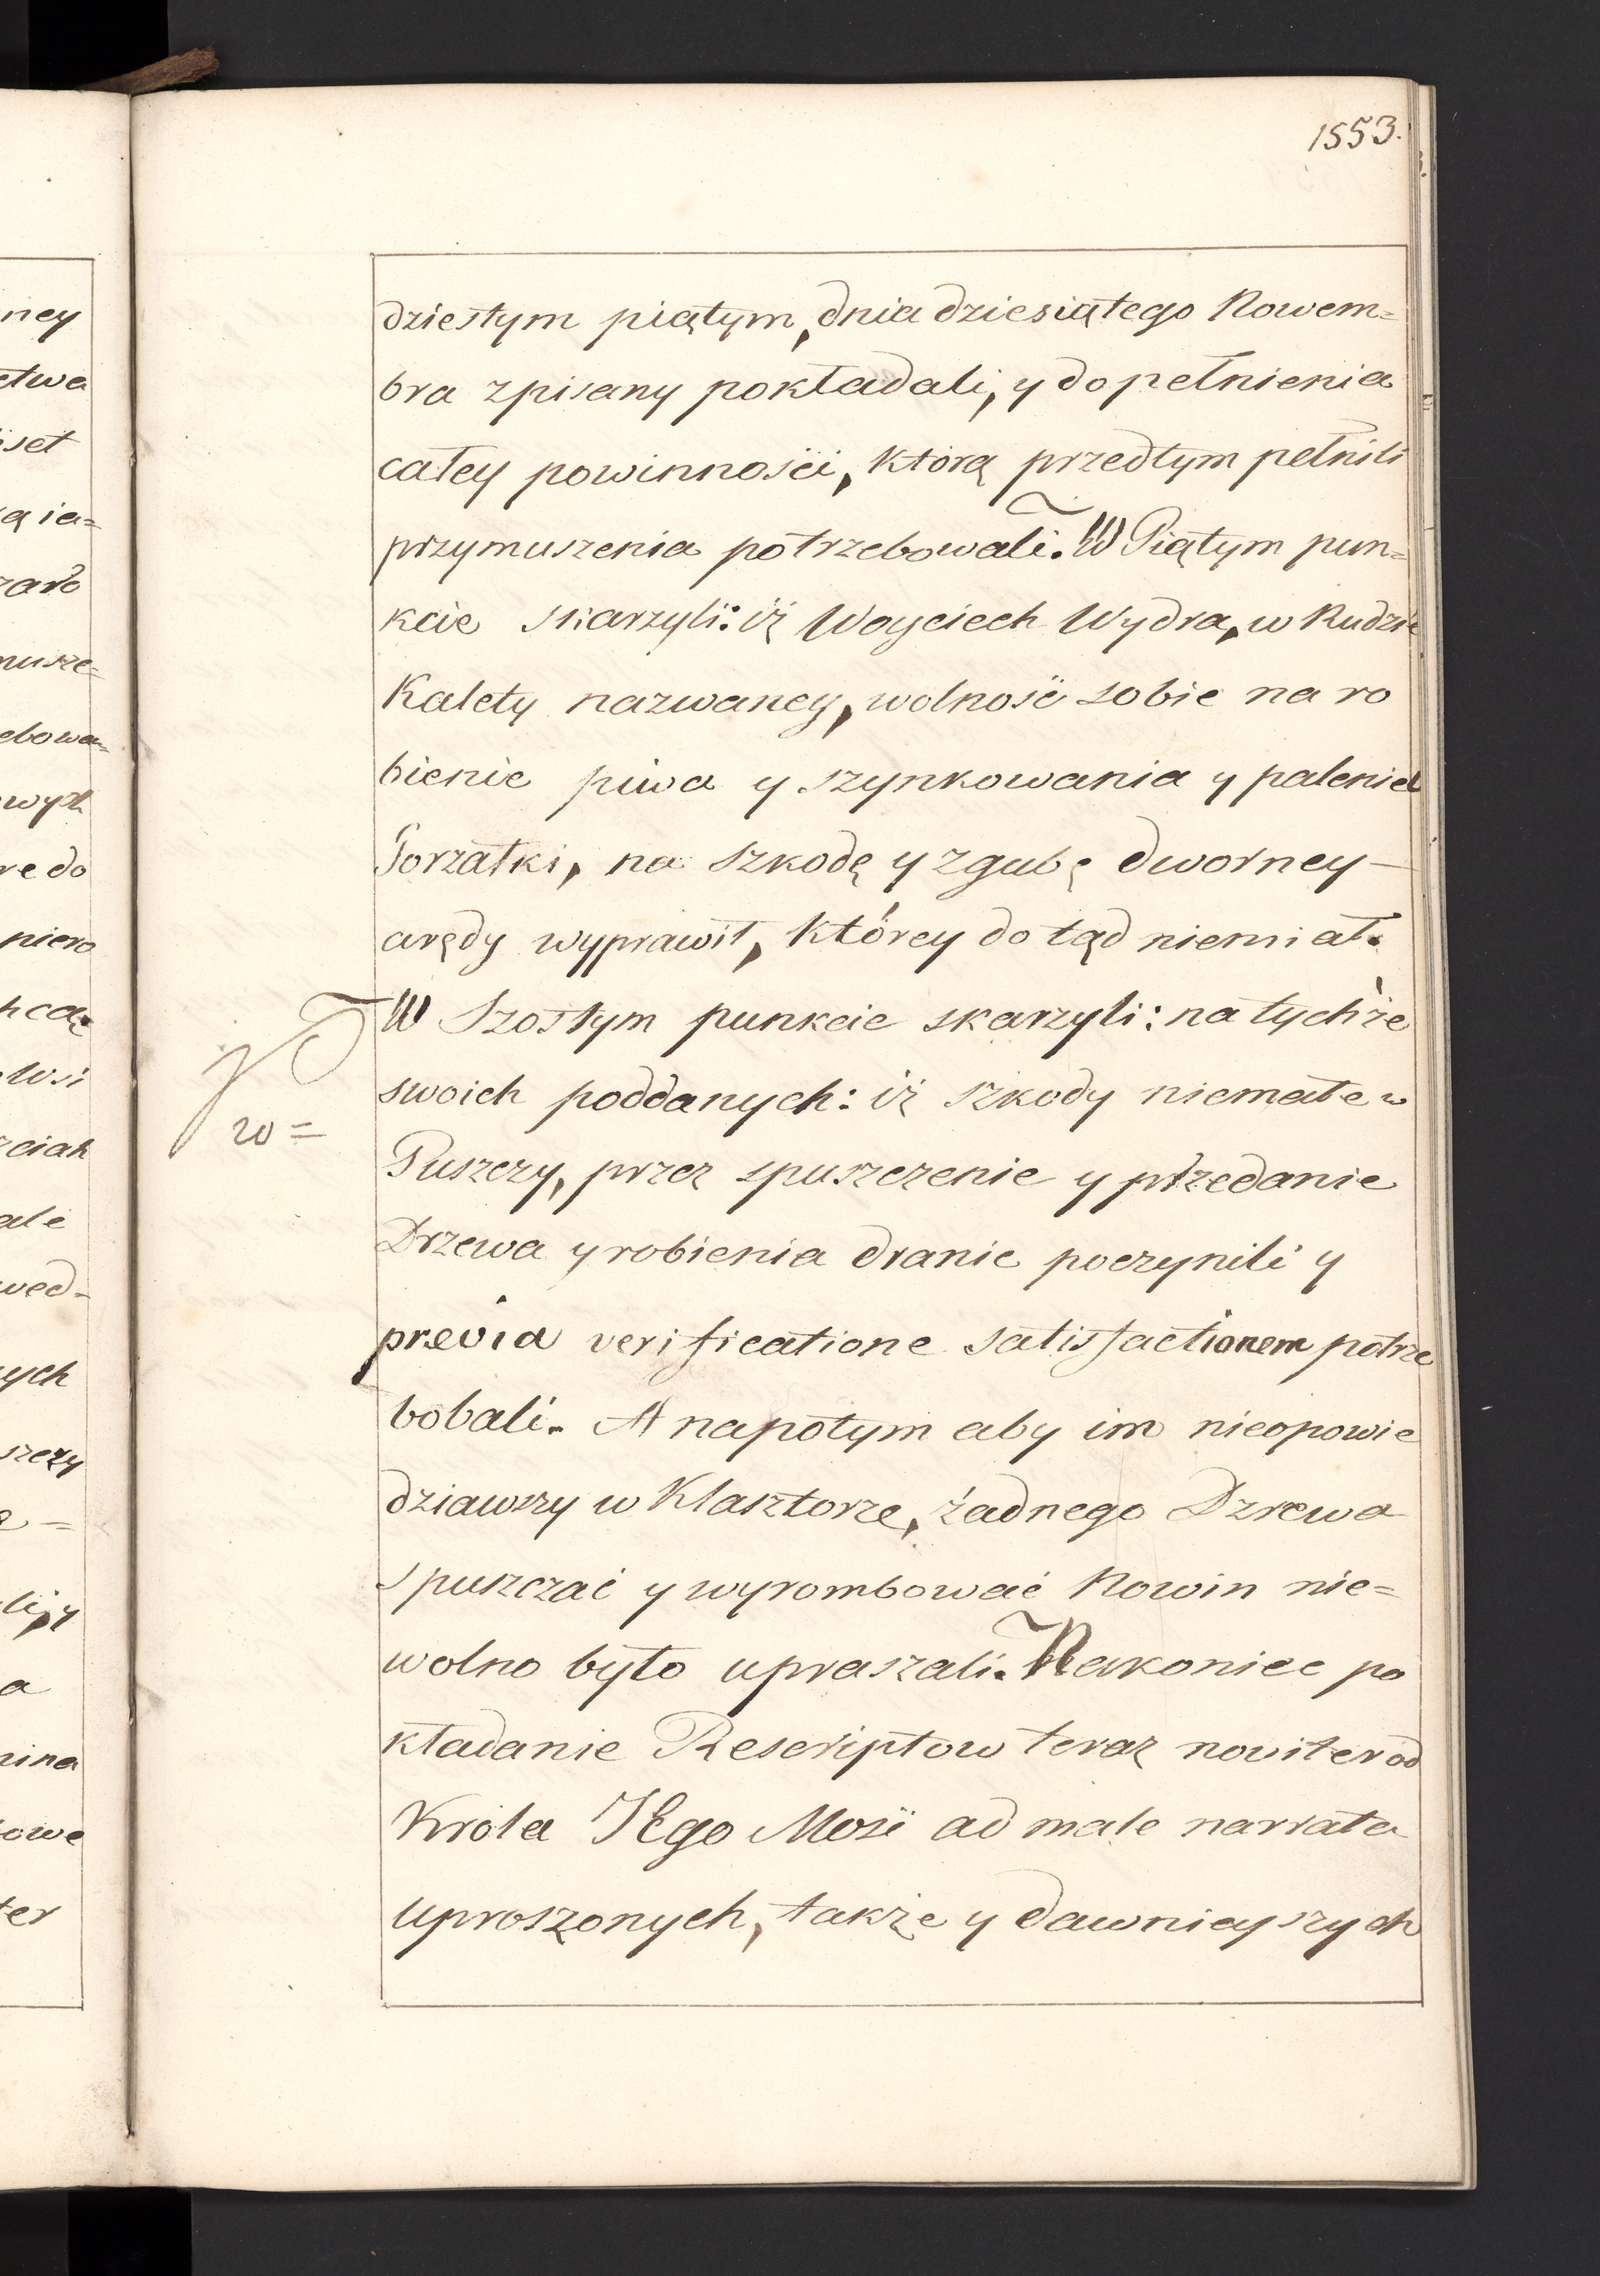 1553.
dziestym piątym, dnia dziesiątego Nowem=
bra zpisany pokładali, y dopełnienia
całey powinnośći, którą przedtym pełnili
przymuszenia potrzebowali. W Piątym pun=
kcie skarzyli: iż Woyciech Wydra, w Rudzie
Kalety nazwaney, wolność sobie na ro
bienie piwa y szynkowania y palenie
Gorzałki, na szkodę y zgubę dworney —
arędy wyprawił, którey do tąd niemiał.
W Szostym punkcie skarzyli: na tychże
swoich poddanych: iż szkody niemałe w
Puszczy, przez spuszczenie y przedanie
Drzewa y robienia dranic poczynili y
prævia verificatione satisfactionem potrze
bobali. A napotym aby im nieopowie
dziawszy w Klasztorze, żadnego Dzrewa
spuszczać y wyrombować Nowin nie=
wolno było upraszali. Nakoniec po
kładanie Rescriptow teraz noviter od
Krola JEgo Mości ad male narrata
uproszonych, także y dawnieyszych
w=
ney
iset
nusze=
ebowa=
re do
piero
ciah
wed-
ych
szczy
a
ter